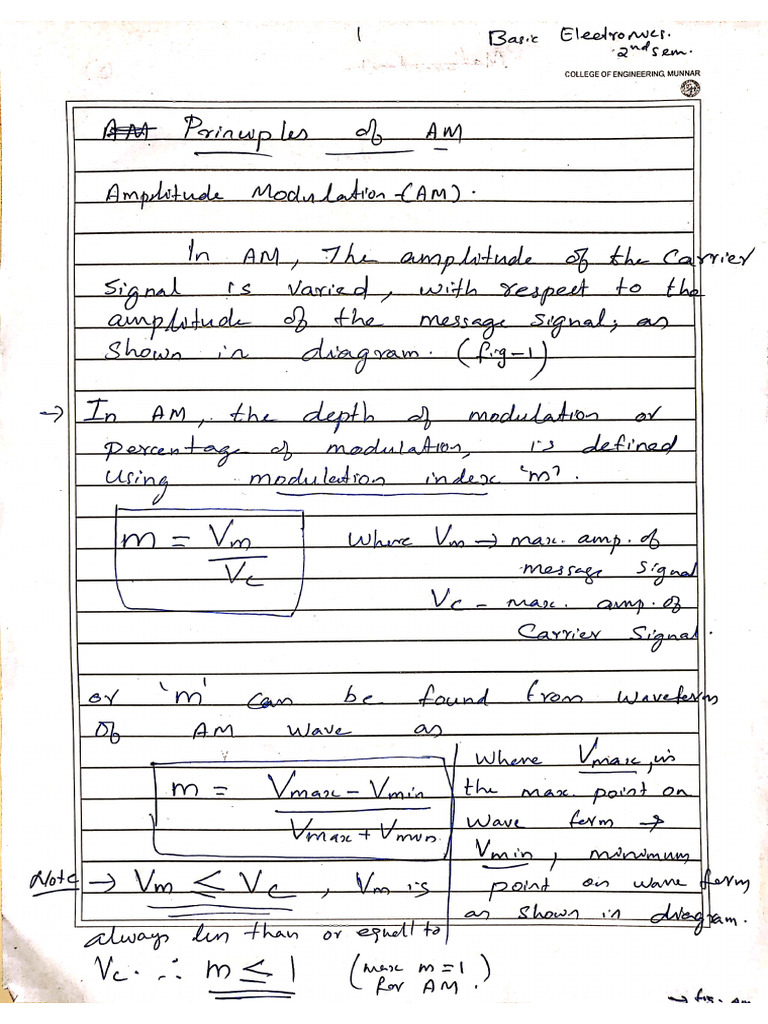 1
Basic Electronics.
2nd sem.
COLLEGE OF ENGINEERING, MUNNAR
AM Principles of AM
Amplitude Modulation-(AM).
In AM, The amplitude of the Carrier
Signal is varied, with respect to the
amplitude of the message signal, as
Shown in diagram. (fig-1)
→ In AM, the depth of modulation or
percentage of modulation, is defined
Using modulation index 'm'.
m = Vm / Vc
Where Vm → max. amp. of
message Signal
Vc - max. amp. of
Carrier Signal.
or 'm' can be found from waveform
Of AM wave as
m = Vmax - Vmin / Vmax + Vmin
Where Vmax, is
the max. point on
wave form →
Vmin, minimum
point on wave form
as shown in diagram.
Note → Vm ≤ Vc, Vm is
always less than or equall to
Vc. ∴ m ≤ 1 (max m = 1
for AM.)
→ fig.